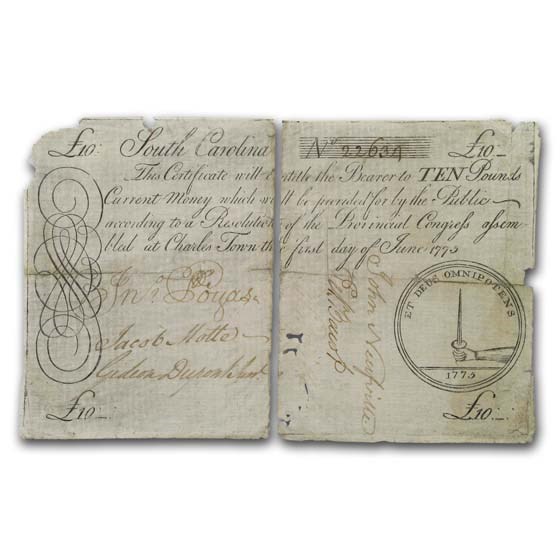 £10: South Carolina No 22634 £10
This Certificate will entitle the Bearer to TEN Pounds
Current Money which will be provided for by the Public
according to a Resolution of the Provincial Congress assem
bled at Charles Town the first day of June 1775
Jno. Poyas
Jacob Motte
Gideon Dupont Junr.
John Neufville
ET DEUS OMNIPOTENS
1775
£10 £10